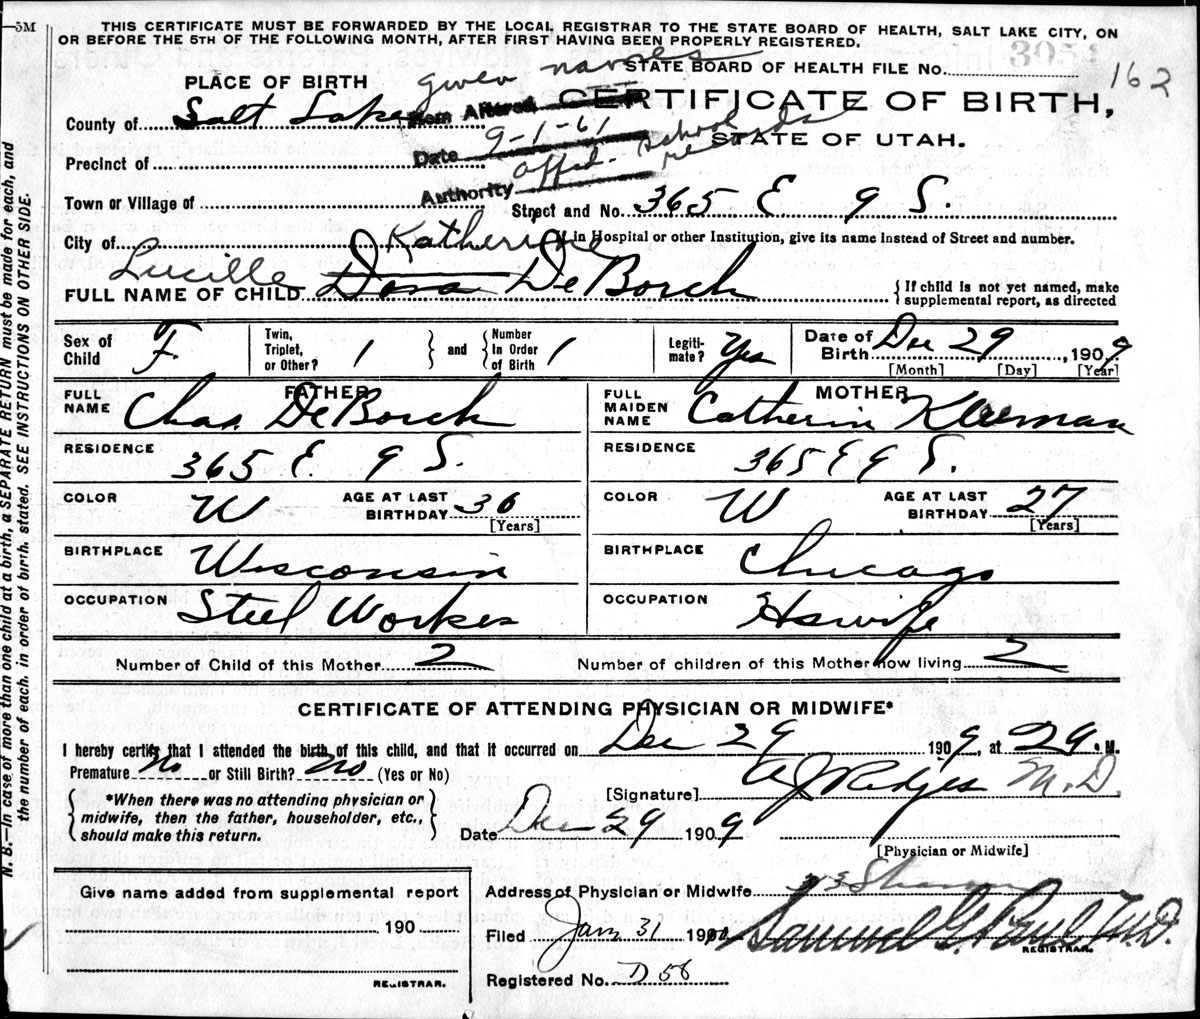 5M THIS CERTIFICATE MUST BE FORWARDED BY THE LOCAL REGISTRAR TO THE STATE BOARD OF HEALTH, SALT LAKE CITY, ON
OR BEFORE THE 5TH OF THE FOLLOWING MONTH, AFTER FIRST HAVING BEEN PROPERLY REGISTERED.
STATE BOARD OF HEALTH FILE No. 162
PLACE OF BIRTH given names
Item Altered CERTIFICATE OF BIRTH,
County of Salt Lake
Date 9-1-61 STATE OF UTAH.
Precinct of
Authority affd. School records
Town or Village of
Street and No. 365 E 9 S.
City of If in Hospital or other Institution, give its name instead of Street and number.
Lucille Katherine
FULL NAME OF CHILD Dora DeBorck
If child is not yet named, make
supplemental report, as directed
Sex of Child F.
Twin, Triplet, or Other? 1 and Number In Order of Birth 1
Legiti-mate? Yes
Date of Birth Dec 29, 1909
[Month] [Day] [Year]
FATHER
FULL NAME Chas. DeBorck
RESIDENCE 365 E. 9 S.
COLOR W AGE AT LAST BIRTHDAY 36
[Years]
BIRTHPLACE Wisconsin
OCCUPATION Steel Worker
MOTHER
FULL MAIDEN NAME Catherin Kleeman
RESIDENCE 365 E 9 S.
COLOR W AGE AT LAST BIRTHDAY 27
[Years]
BIRTHPLACE Chicago
OCCUPATION Hswife
Number of Child of this Mother 2 Number of children of this Mother now living 2
CERTIFICATE OF ATTENDING PHYSICIAN OR MIDWIFE*
I hereby certify that I attended the birth of this child, and that it occurred on Dec 29 1909, at M.
Premature No or Still Birth? No (Yes or No)
[Signature] A J Ridges M.D.
*When there was no attending physician or
midwife, then the father, householder, etc.,
should make this return.
Date Dec 29 1909
[Physician or Midwife]
Give name added from supplemental report
190
REGISTRAR.
Address of Physician or Midwife
Filed Jan 31 190 Samuel G. Paul M.D.
REGISTRAR.
Registered No. D 56
N. B.—In case of more than one child at a birth, a SEPARATE RETURN must be made for each, and
the number of each, in order of birth, stated. SEE INSTRUCTIONS ON OTHER SIDE.